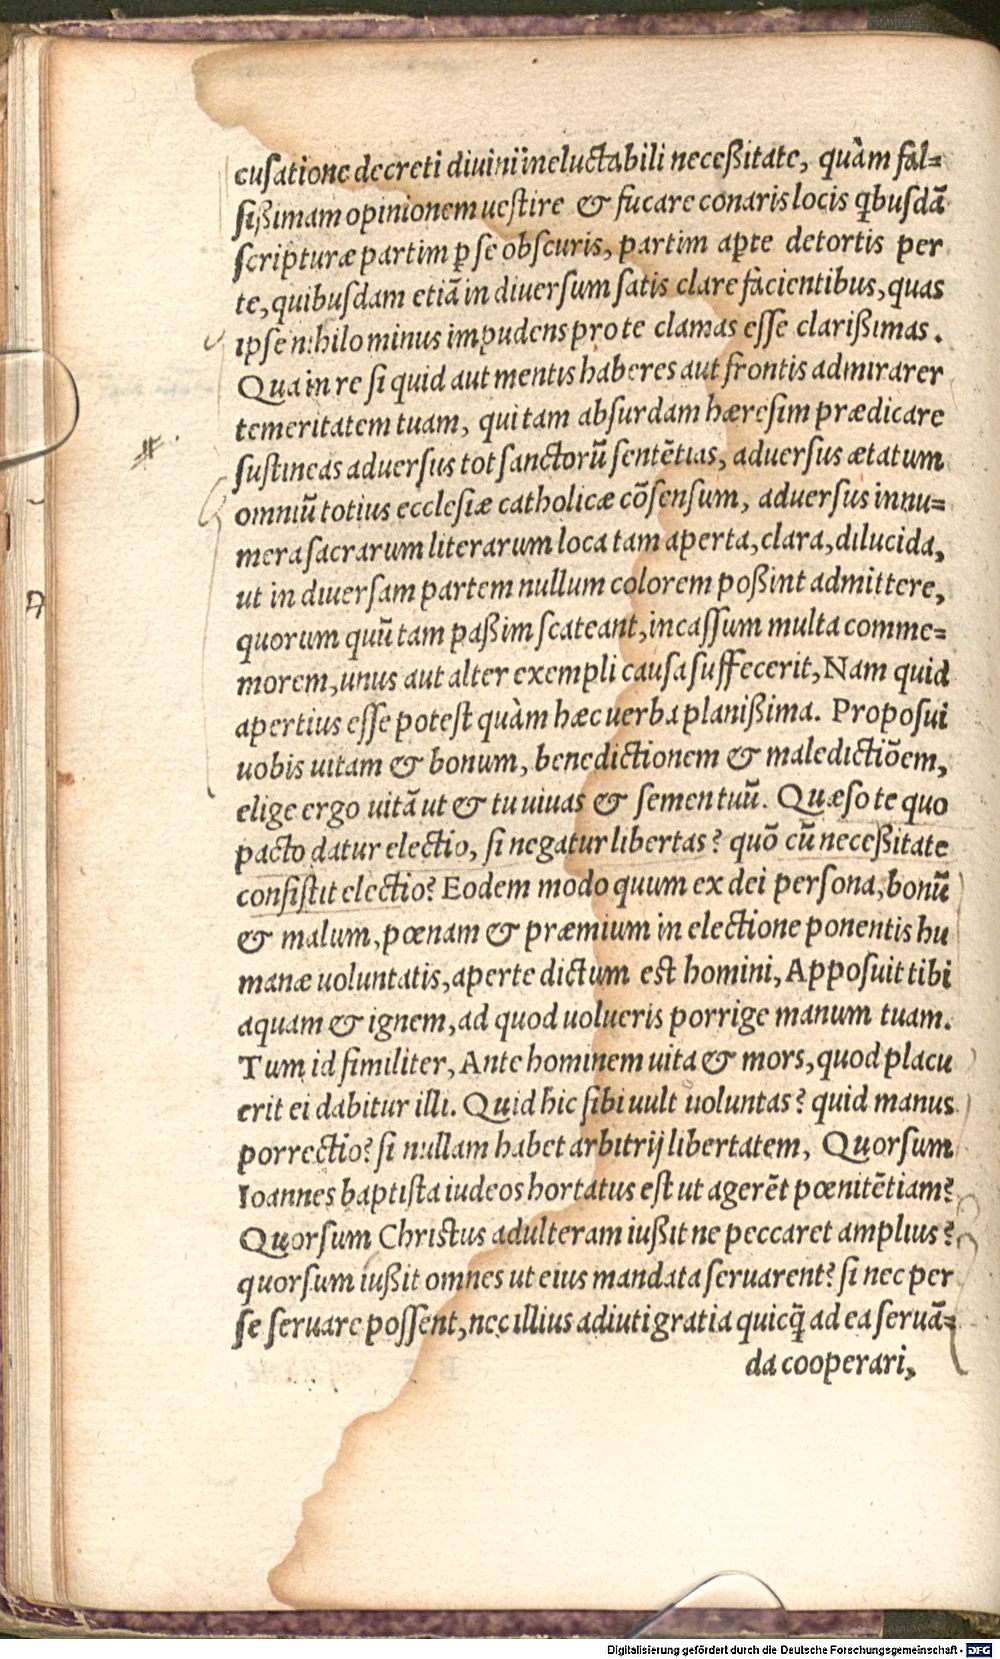 cusatione decreti diuini ineluctabili neceßitate, quàm fal=
sißimam opinionem uestire & fucare conaris locis qbusdā
scripturæ partim ꝑ se obscuris, partim aꝑte detortis per
te, quibusdam etiā in diuersum satis clare facientibus, quas
ipse nihilominus impudens pro te clamas esse clarißimas.
Qua in re si quid aut mentis haberes aut frontis admirarer
temeritatem tuam, qui tam absurdam hæresim prædicare
sustineas aduersus tot sanctorū sentētias, aduersus ætatum
omniū totius ecclesiæ catholicæ cōsensum, aduersus innu=
mera sacrarum literarum loca tam aperta, clara, dilucida,
ut in diuersam partem nullum colorem poßint admittere,
quorum quū tam paßim scateant, incassum multa comme=
morem, unus aut alter exempli causa suffecerit, Nam quid
apertius esse potest quàm hæc uerba planißima. Proposui
uobis uitam & bonum, benedictionem & maledictiōem,
elige ergo uitā ut & tu uiuas & semen tuū. Quæso te quo
pacto datur electio, si negatur libertas? quō cū neceßitate
consistit electio? Eodem modo quum ex dei persona, bonū
& malum, pœnam & præmium in electione ponentis hu
manæ uoluntatis, aperte dictum est homini, Apposuit tibi
aquam & ignem, ad quod uolueris porrige manum tuam.
Tum id similiter, Ante hominem uita & mors, quod placu
erit ei dabitur illi. Quid hic sibi uult uoluntas? quid manus
porrectio? si nullam habet arbitrij libertatem, Quorsum
Ioannes baptista iudeos hortatus est ut agerēt pœnitētiam?
Quorsum Christus adulteram iußit ne peccaret amplius?
quorsum iußit omnes ut eius mandata seruarent? si nec per
se seruare possent, nec illius adiuti gratia quicq̄ ad ea seruā=
da cooperari,
Digitalisierung gefördert durch die Deutsche Forschungsgemeinschaft - DFG